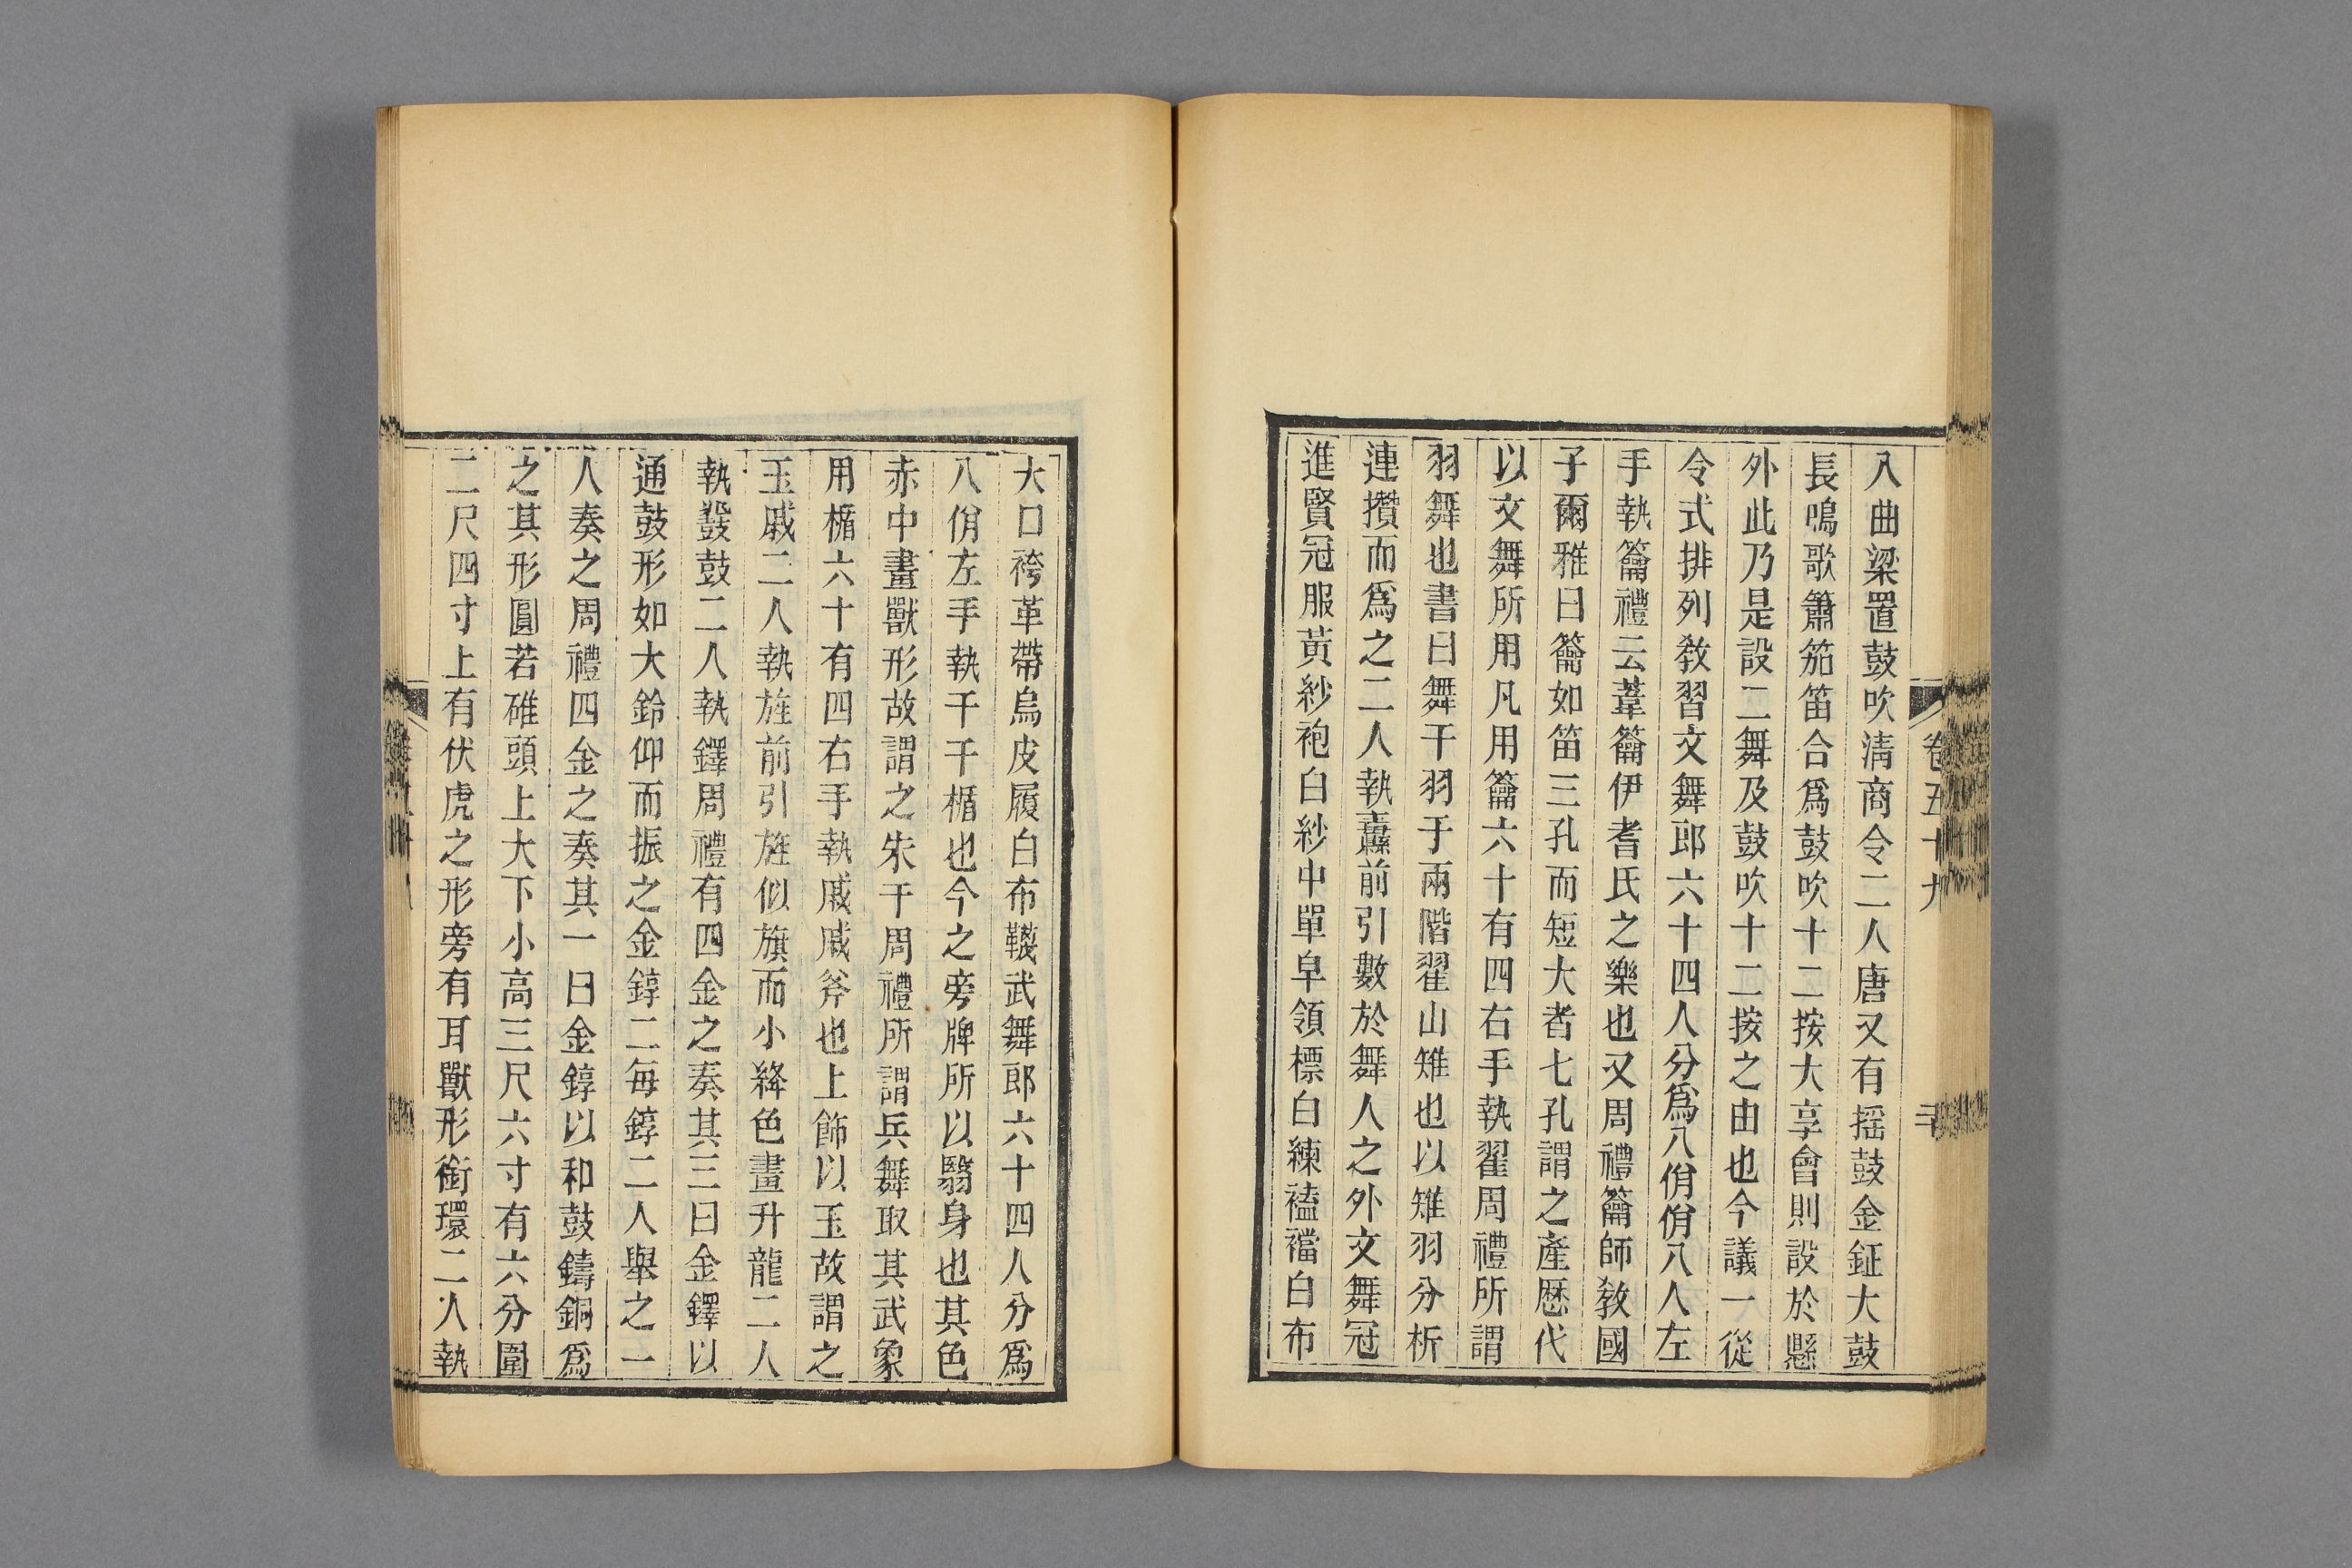 卷五十九
入曲梁置鼓吹清商令二人唐又有摇鼓金鉦大鼓
長鳴歌簫笳笛合爲鼓吹十二按大享會則設於懸
外此乃是設二舞及鼓吹十二按之由也今議一從
令式排列敎習文舞郎六十四人分爲八佾佾八人左
手執籥禮云葦籥伊耆氏之樂也又周禮籥師敎國
子爾雅曰籥如笛三孔而短大者七孔謂之產歷代
以文舞所用凡用籥六十有四右手執翟周禮所謂
羽舞也書曰舞干羽于兩階翟山雉也以雉羽分析
連攢而爲之二人執纛前引數於舞人之外文舞冠
進賢冠服黃紗袍白紗中單皁領標白練䙪襠白布
大口袴革帶烏皮履白布韈武舞郎六十四人分爲
八佾左手執干干楯也今之旁牌所以翳身也其色
赤中畫獸形故謂之朱干周禮所謂兵舞取其武象
用楯六十有四右手執戚戚斧也上飾以玉故謂之
玉戚二人執旌前引旌似旗而小絳色畫升龍二人
執鼗鼓二人執鐸周禮有四金之奏其三曰金鐸以
通鼓形如大鈴仰而振之金錞二每錞二人舉之一
人奏之周禮四金之奏其一曰金錞以和鼓鑄銅爲
之其形圓若碓頭上大下小高三尺六寸有六分圍
二尺四寸上有伏虎之形旁有耳獸形銜環二人執